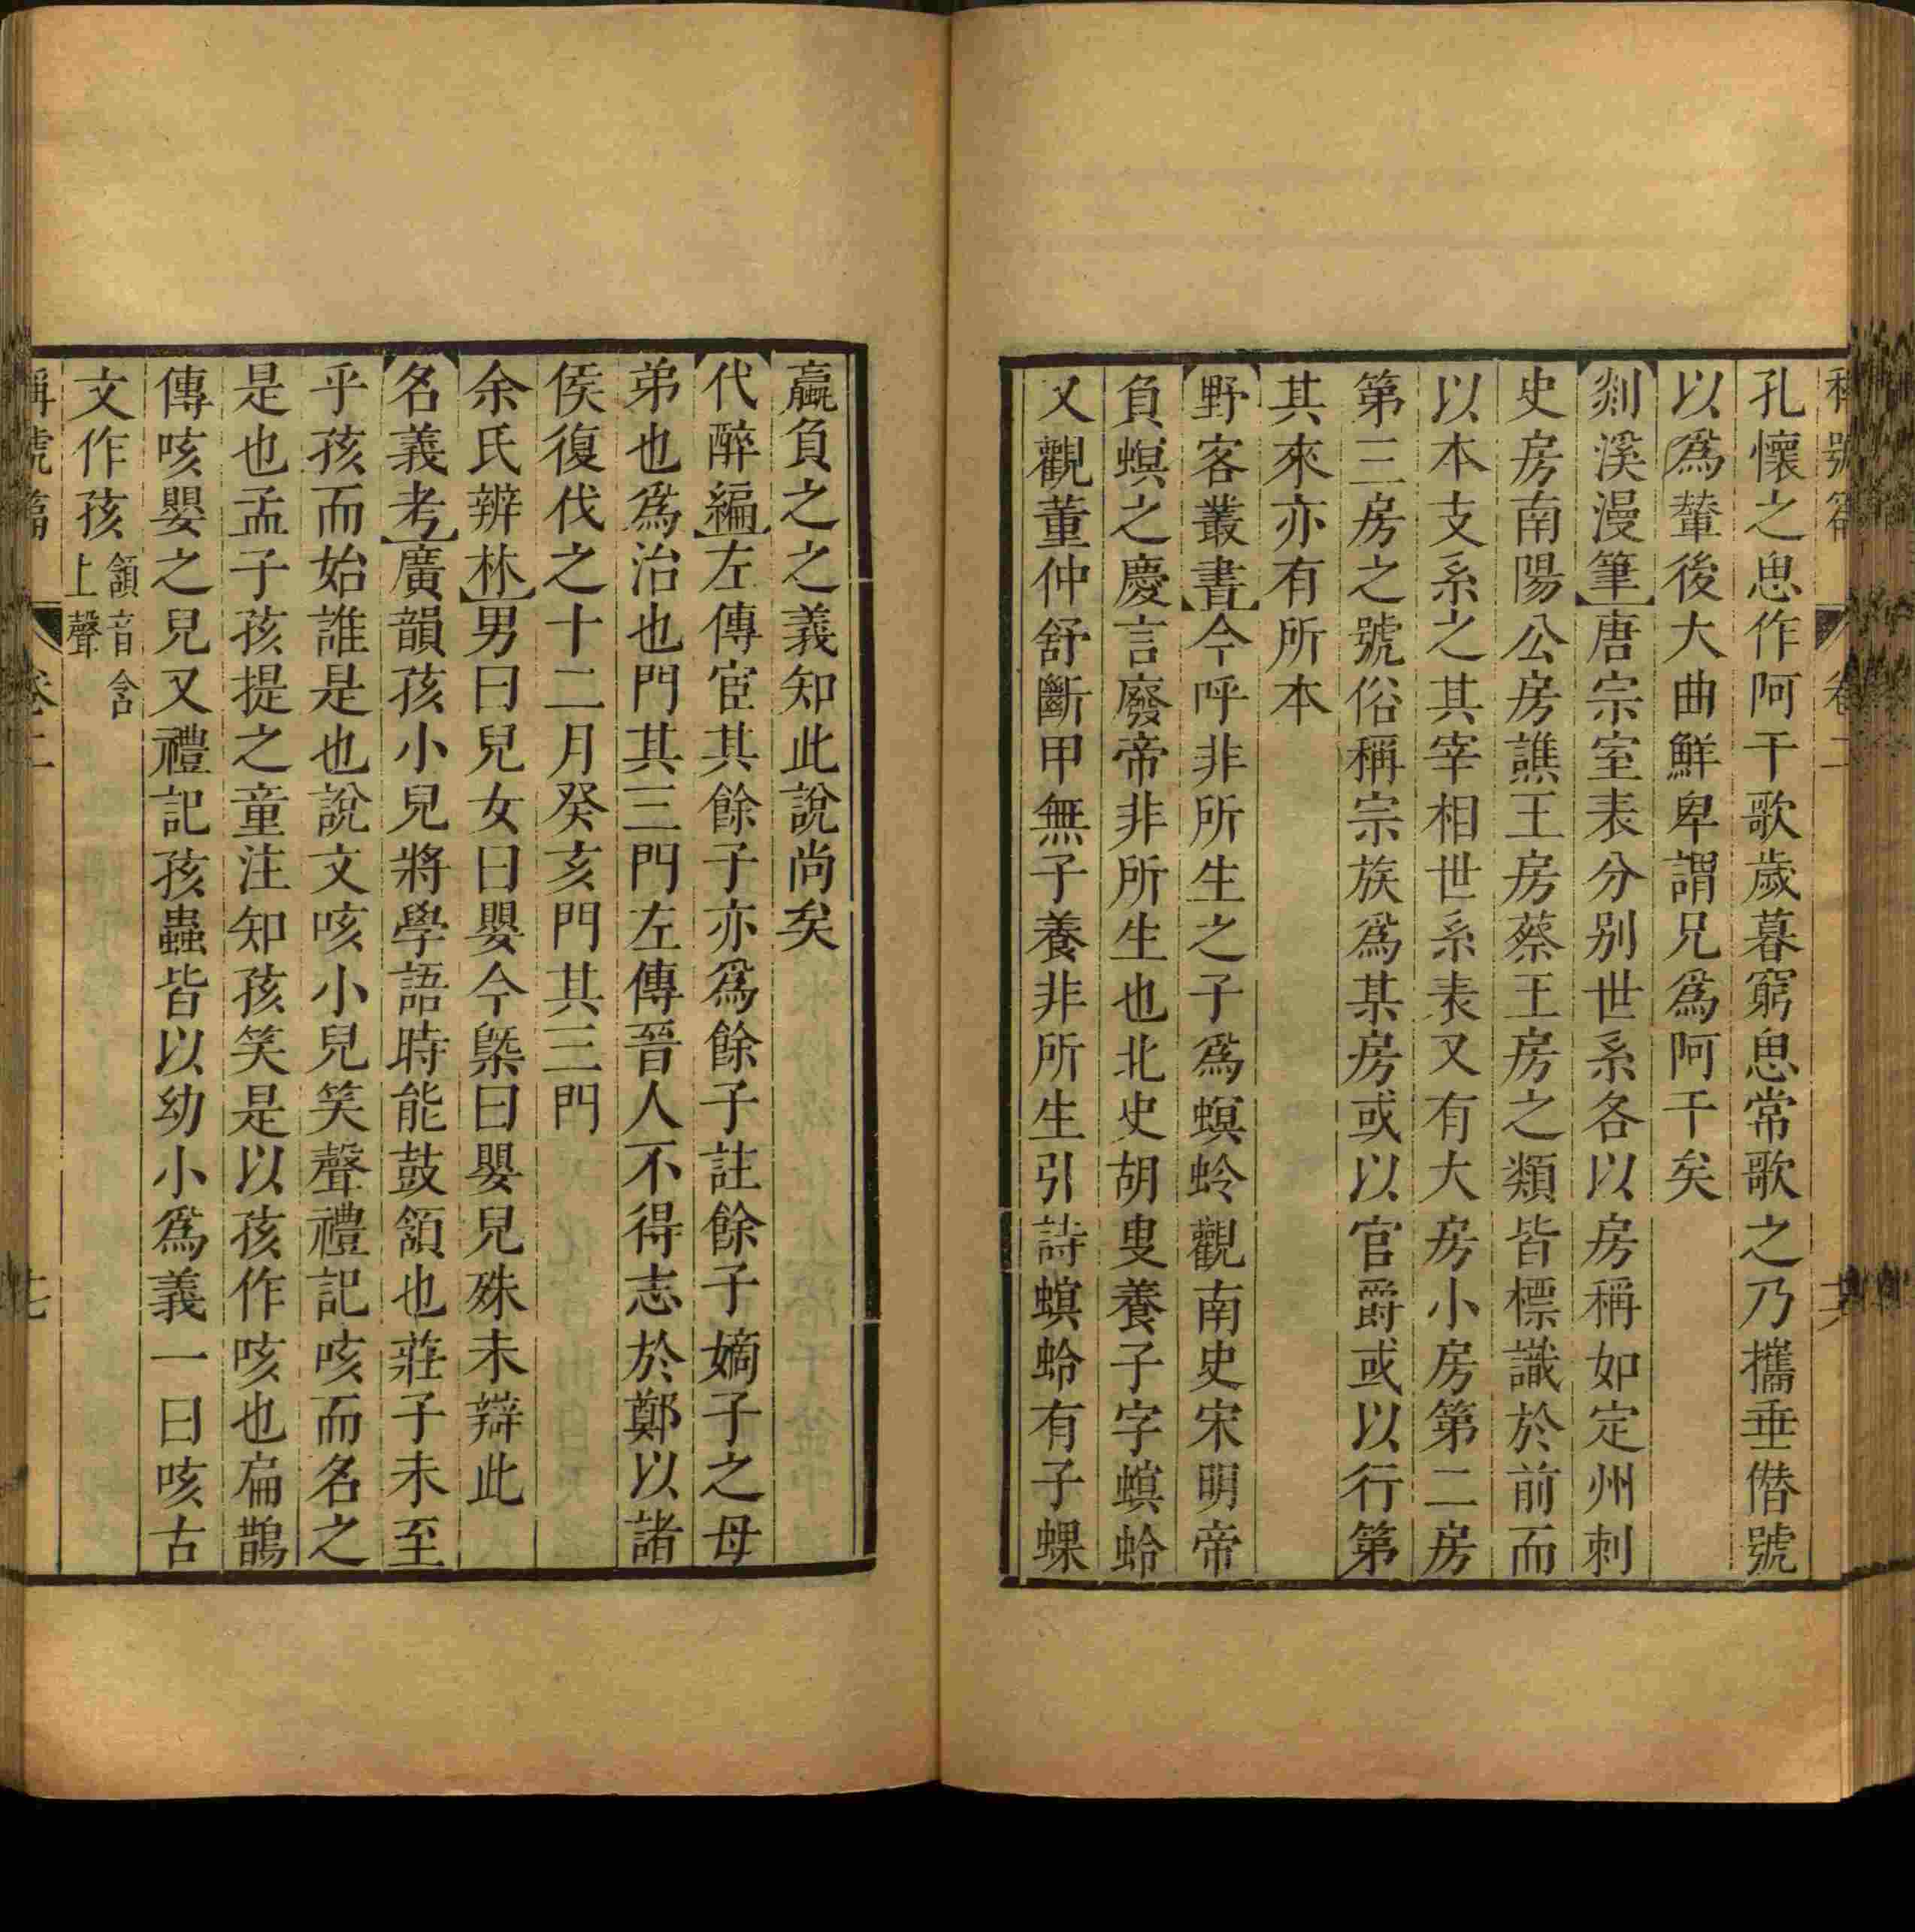 孔懷之思作阿干歌歲暮窮思常歌之乃攜垂僭號
以爲輦後大曲鮮卑謂兄爲阿干矣
剡溪漫筆唐宗室表分別世系各以房稱如定州刺
史房南陽公房譙王房蔡王房之類皆標識於前而
以本支系之其宰相世系表又有大房小房第二房
第三房之號俗稱宗族爲某房或以官爵或以行第
其來亦有所本
野客叢書今呼非所生之子爲螟蛉觀南史宋明帝
負螟之慶言廢帝非所生也北史胡叟養子字螟蛉
又觀董仲舒斷甲無子養非所生引詩螟蛉有子蜾
蠃負之之義知此說尚矣
代醉編左傳宦其餘子亦爲餘子註餘子嫡子之母
弟也爲治也門其三門左傳晉人不得志於鄭以諸
侯復伐之十二月癸亥門其三門
余氏辨林男曰兒女曰嬰今槩曰嬰兒殊未辯此
名義考廣韻孩小兒將學語時能鼓頷也莊子未至
乎孩而始誰是也說文咳小兒笑聲禮記咳而名之
是也孟子孩提之童注知孩笑是以孩作咳也扁鵲
傳咳嬰之兒又禮記孩蟲皆以幼小爲義一曰咳古
文作孩頷音含上聲
稱號篇 卷二 十七